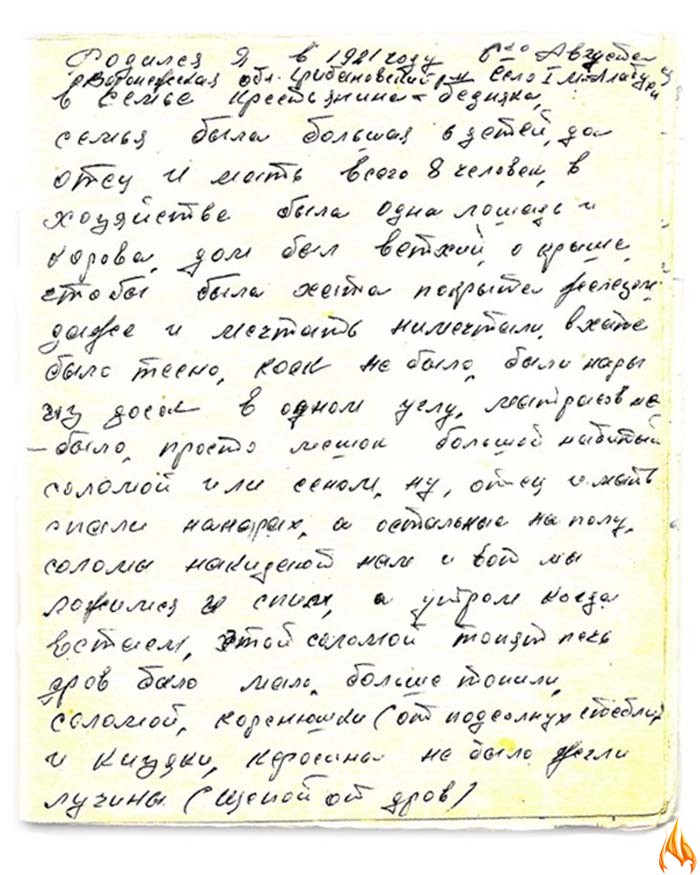 Родился Я в 1921 году 6го Августа
Воронежская обл. Грибановский р-н Село I М-Алабухи
в семье крестьянина-бедняка,
семья была большая 6 детей, да
отец и мать всего 8 человек, в
хозяйстве была одна лошадь и
корова, дом был ветхий, о крыше,
чтобы была хата покрыта железом
даже и мечтать нимечтали, в хате
было тесно, коек не было, были нары
из досок в одном углу, матрасов не
было, просто мешок большой набитый
соломой или сеном, ну, отец и мать
спали на нарах, а остальные на полу,
соломы накидают нам и вот мы
ложимся и спим, а утром когда
встаем, этой соломой топят печь
дров было мало, больше топили,
соломой, коренюшки (от подсолнух стеблий
и кизяки, керосины не было жгли
лучины (щепой от дров)